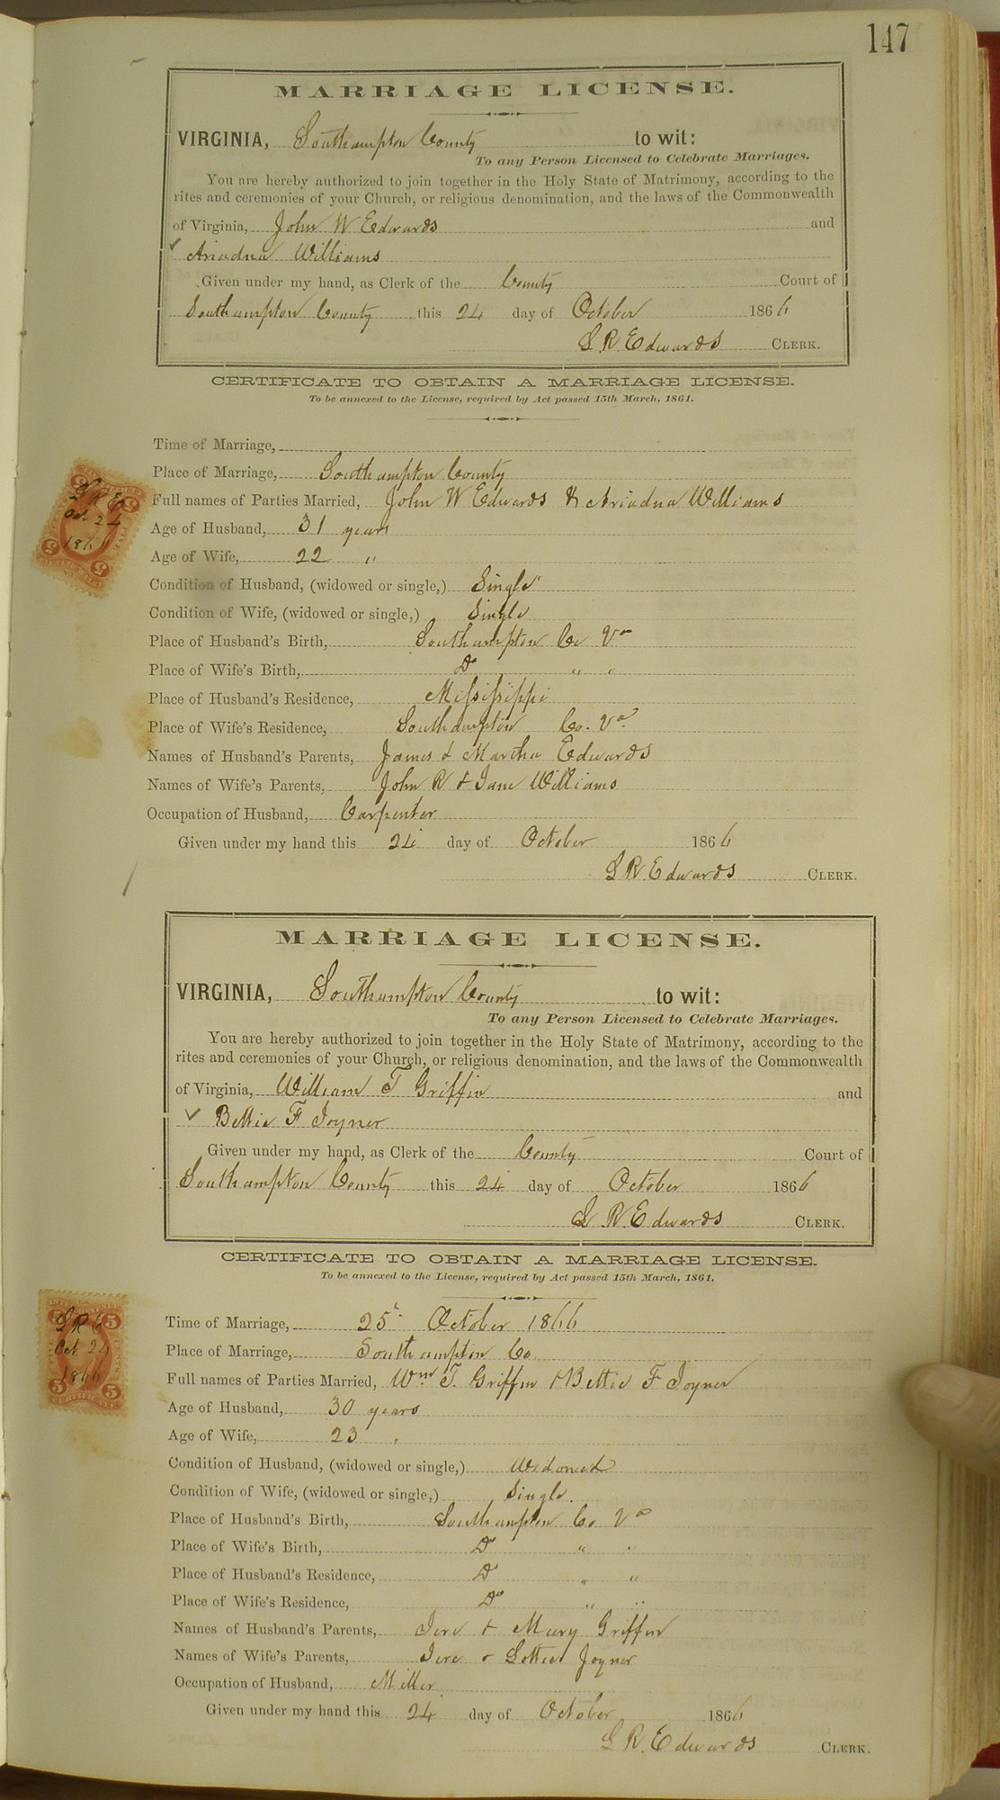 147
MARRIAGE LICENSE.
VIRGINIA, Southampton County to wit:
To any Person Licensed to Celebrate Marriages.
You are hereby authorized to join together in the Holy State of Matrimony, according to the
rites and ceremonies of your Church, or religious denomination, and the laws of the Commonwealth
of Virginia, John W Edwards and
✓ Ariadna Williams
Given under my hand, as Clerk of the County Court of
Southampton County this 24 day of October 1866
L R Edwards CLERK.
CERTIFICATE TO OBTAIN A MARRIAGE LICENSE.
To be annexed to the License, required by Act passed 15th March, 1861.
Time of Marriage,
Place of Marriage, Southampton County
Full names of Parties Married, John W Edwards & Ariadna Williams
L R E
Oct 24
1866
5 5
Age of Husband, 31 years
Age of Wife, 22 "
Condition of Husband, (widowed or single,) Single
Condition of Wife, (widowed or single,) Single
Place of Husband's Birth, Southampton Co Va
Place of Wife's Birth, Do " "
Place of Husband's Residence, Mississippi
Place of Wife's Residence, Southampton Co. Va
Names of Husband's Parents, James & Martha Edwards
Names of Wife's Parents, John R & Jane Williams
Occupation of Husband, Carpenter
Given under my hand this 24 day of October 1866
L R. Edwards CLERK.
MARRIAGE LICENSE.
VIRGINIA, Southampton County to wit:
To any Person Licensed to Celebrate Marriages.
You are hereby authorized to join together in the Holy State of Matrimony, according to the
rites and ceremonies of your Church, or religious denomination, and the laws of the Commonwealth
of Virginia, William T Griffin and
✓ Bettie F Joyner
Given under my hand, as Clerk of the County Court of
Southampton County this 24 day of October 1866
L R Edwards CLERK.
CERTIFICATE TO OBTAIN A MARRIAGE LICENSE.
To be annexed to the License, required by Act passed 15th March, 1861.
5 5
L R E
Oct 24
1866
5 5
Time of Marriage, 25th October 1866
Place of Marriage, Southampton Co.
Full names of Parties Married, Wm T. Griffin & Bettie F Joyner
Age of Husband, 30 years
Age of Wife, 23 "
Condition of Husband, (widowed or single,) Widowed
Condition of Wife, (widowed or single,) Single.
Place of Husband's Birth, Southampton Co. Va
Place of Wife's Birth, Do " "
Place of Husband's Residence, Do " "
Place of Wife's Residence, Do " "
Names of Husband's Parents, Jere & Mary Griffin
Names of Wife's Parents, Jere & Joyner
Occupation of Husband, Miller
Given under my hand this 24 day of October 1866
L R. Edwards CLERK.